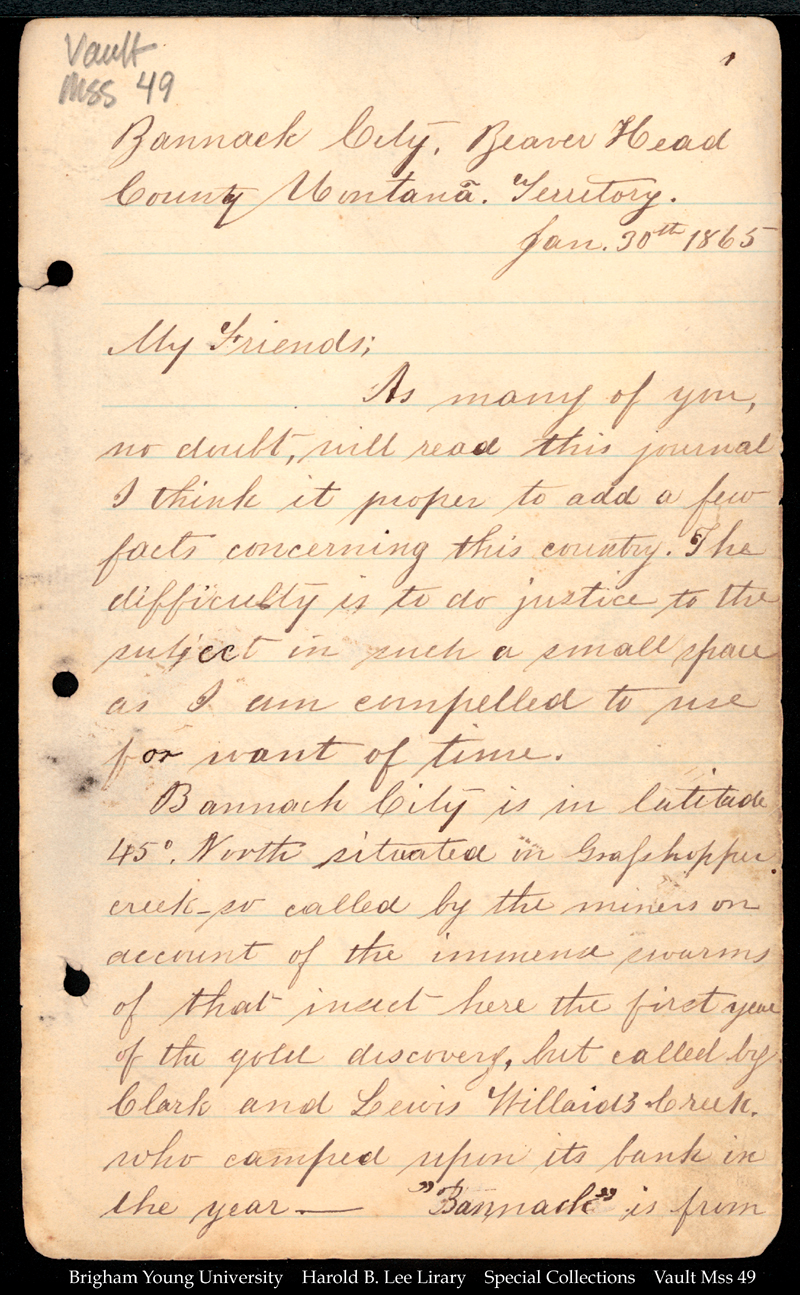 Vault
Mss 49
1
Bannack City, Beaver Head
County Montana. Territory.
Jan. 30th 1865
My Friends;
As many of you,
no doubt, will read this journal
I think it proper to add a few
facts concerning this country. The
difficulty is to do justice to the
subject in such a small space
as I am compelled to use
for want of time.
Bannack City is in latitude
45°. North situated on Grasshopper
creek - so called by the miners on
account of the immense swarms
of that insect here the first year
of the gold discovery, but called by
Clark and Lewis Willards Creek.
who camped upon its bank in
the year — "Bannack" is from
Brigham Young University Harold B. Lee Lirary Special Collections Vault Mss 49